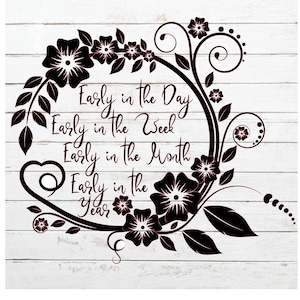 Early in the Day
Early in the Week
Early in the Month
Early in the
Year